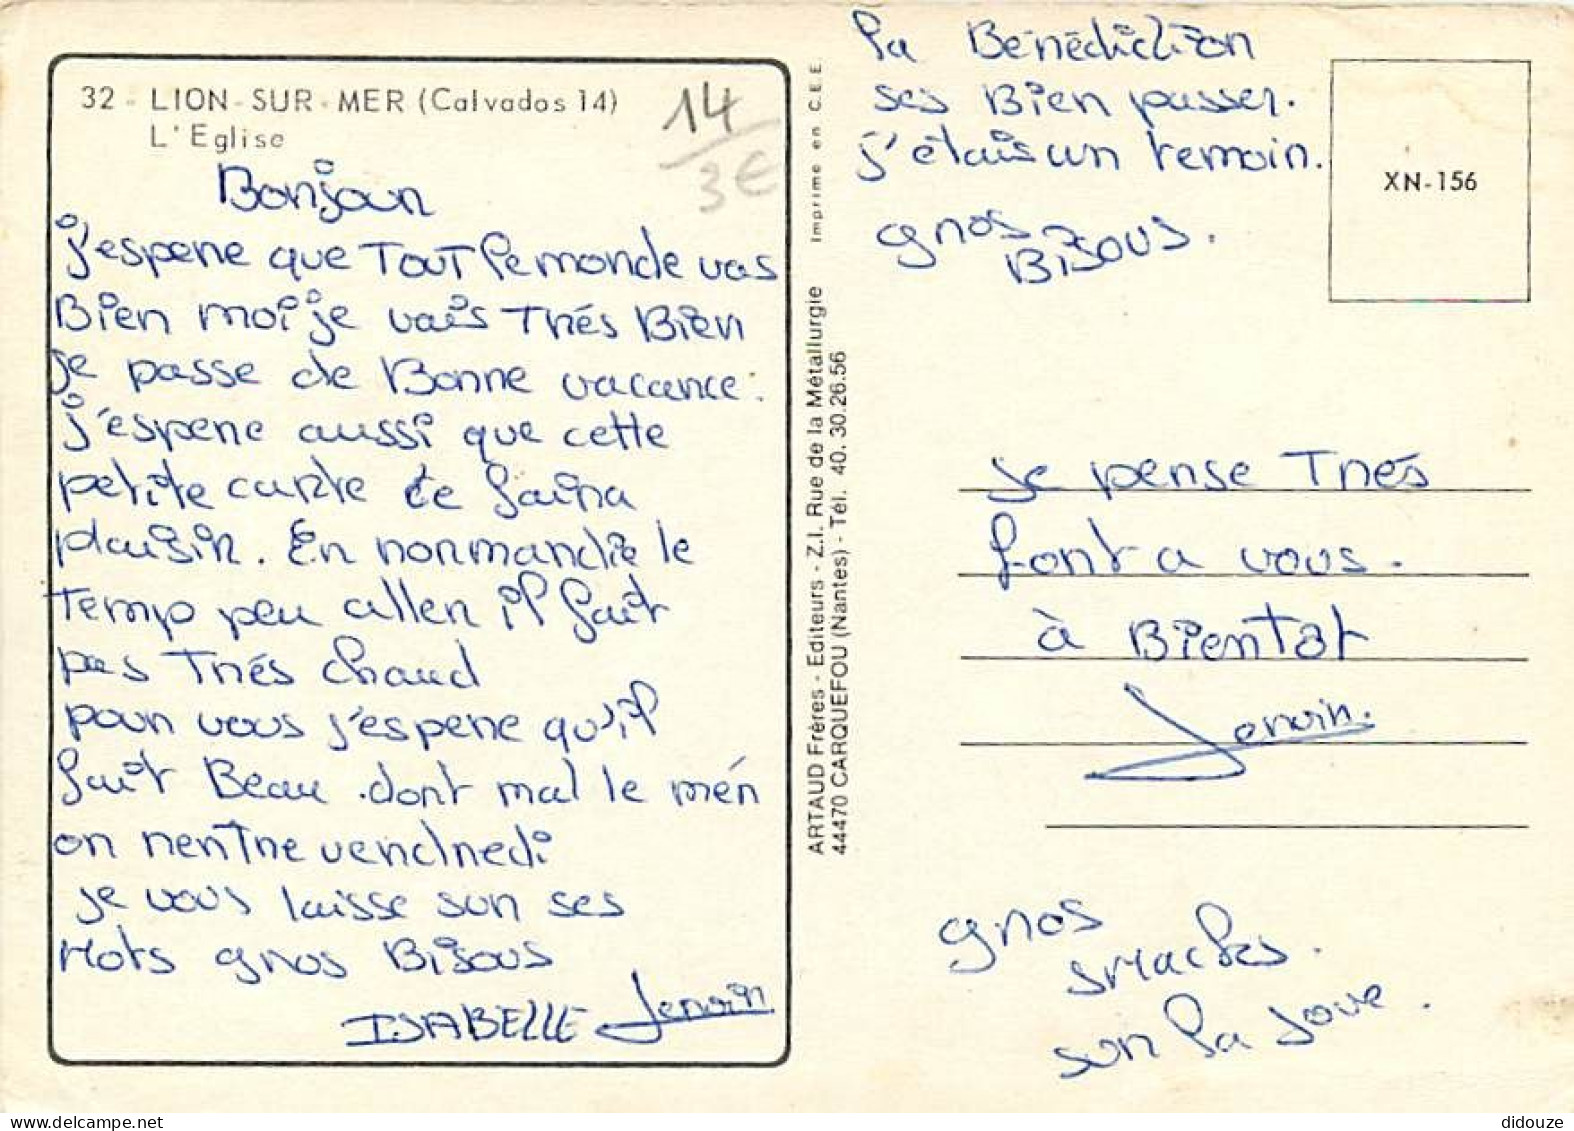 32 - LION-SUR-MER (Calvados 14)
L'Eglise
14
3€
Bonjour
j'espere que TOUT le monde vas
Bien moi je vais Trés Bien
je passe de Bonne vacance.
j'espere aussi que cette
petite carte te faira
plaisir. En normandie le
Temp peu aller il fait
pas Trés chaud
pour vous j'espere qu'il
fait Beau. dont mal le mér
on rentre vendredi
je vous laisse sur ses
Mots gros Bisous
ISABELLE
ARTAUD Frères - Editeurs - Z.I. Rue de la Métallurgie Imprimé en C.E.E.
44470 CARQUEFOU (Nantes) - Tél. 40. 30.26.56
la Bénédiction
ses Bien passer.
j'étais un temoin.
gros
BISOUS.
XN-156
je pense Trés
fort a vous.
à Bientot
gros
smacks.
sur la joue.
didouze